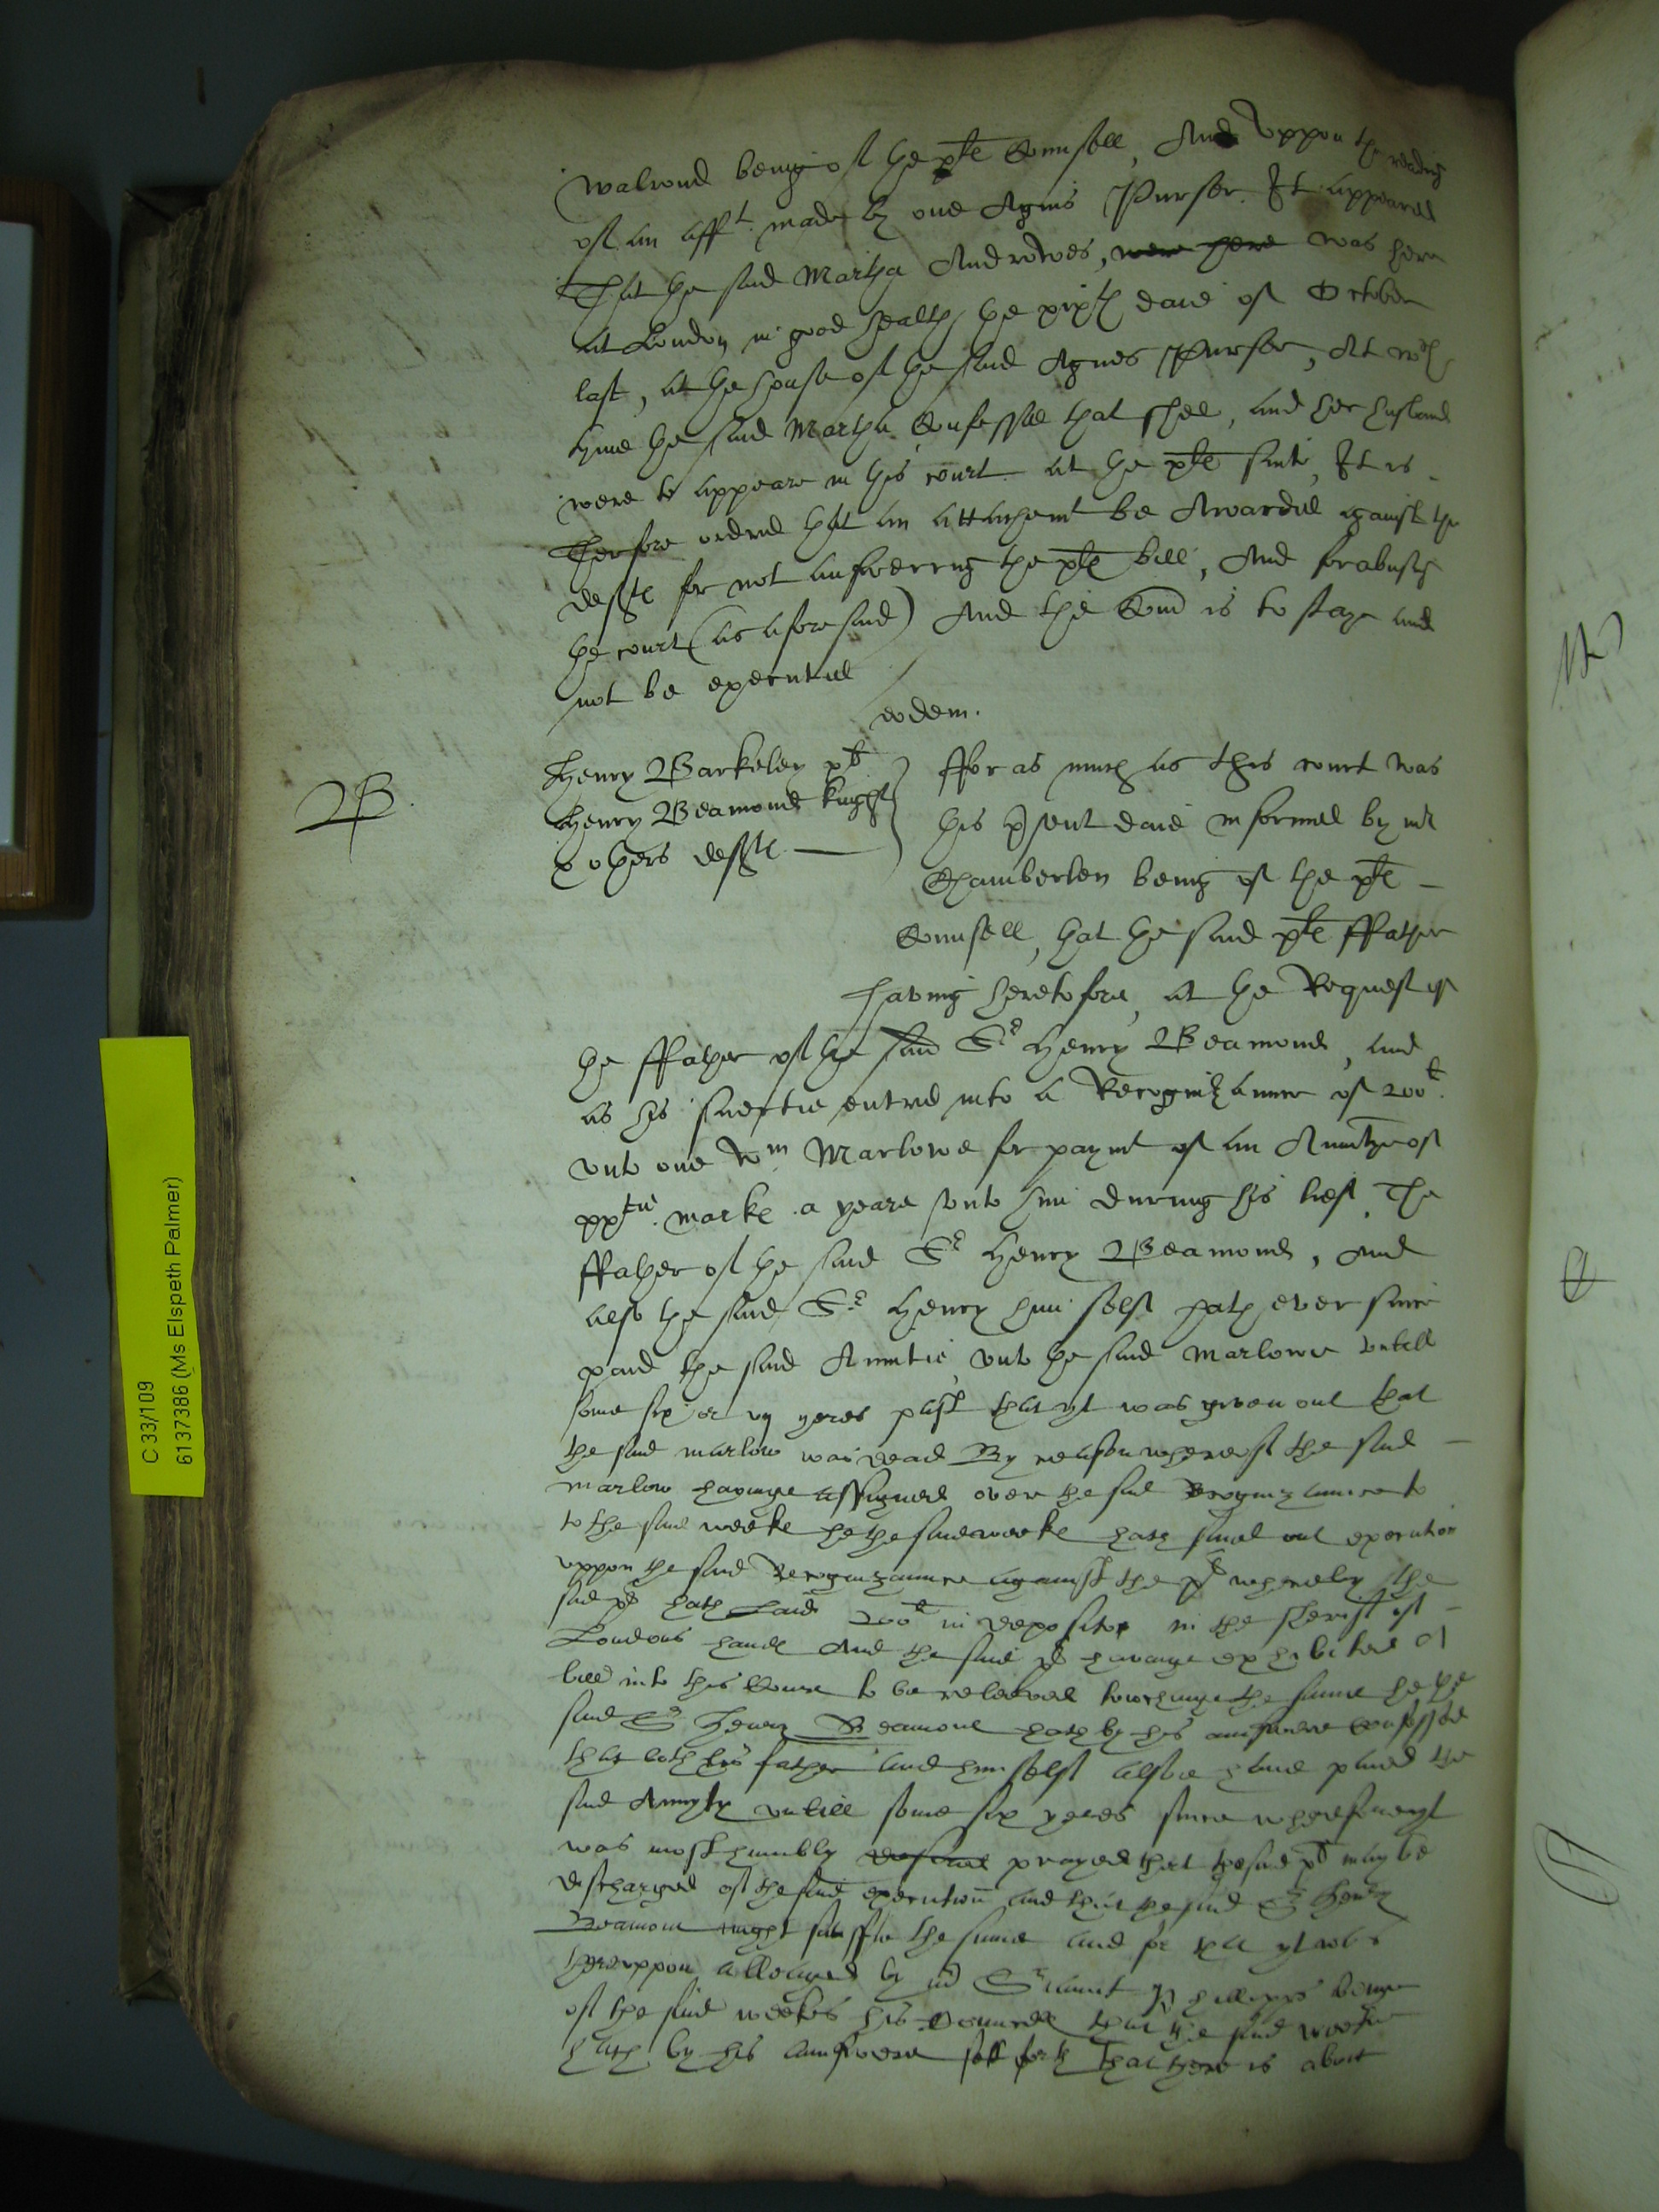 Walrond being of the plt Counsell, And uppon the reading
of an afft. made by one Agnis Purser. It appeared
That the said Martha Androwes, were here was here
at London in good health the xixth daie of October
last, at the house of the said Agnes Purser, At wch
tyme the said Martha Confessed that shee, and her husband
were to appeare in this court at the plt suite, It is
Therfore ordred that an attachemt be Awarded against the
deftes for not answerring the plt bill, And for abusing
the court (as aforesaid) And the Com is to staye and
not be executed
eodem.
B
Henry Barkeley plt
Henry Beamonde knight
& others deftes
fforasmuch as this court was
this present daie informed by mr
Chamberlen being of the plt
Counsell, that the said plt ffather
having heretofore, at the Request of
the ffather of the said Sr Henry Beamond, and
as his suertie entred into a Recognizaunce of 200li.
unto one Wm Marlowe for paymt of an Annuitye of
xxtie. marke a yeare unto him during his lief, The
ffather of the said Sr Henry Beamond, And
also the said Sr Henry him self hath ever since
paid the said Anuitie, unto the said Marlowe untill
some six or vij yeres past that yt was given out that
the said marlow was dead By reason whereof the said
marlow havinge assigned over the said Recognizaunce to
to the said weeke he the said weeke hath sued out execution
uppon the said Recognizaunce against the plt whereby the
said plt hath Laid 200li in deposito in the Sherif of
Londons handes And the said plt havinge exhibited a
bill into this Court to be releived touchinge the same he the
said Sr Henry Beamont hath by his aunswere Confessed
that both his father and himself alsoe have paied the
said Annuyty untill some six yeres since wherefore yt
was most humbly desired prayed that the said plt may be
discharged of the said execution and that the said Sr Henry
Beamont might satisfie the same and for that yt was
thereuppon alleaged by mr Sriaunt Phillipps beinge
of the said weekes his Councell that the said weeke
hath by his aunswere sett forth That there is about
C 33/109
6137386 (Ms Elspeth Palmer)